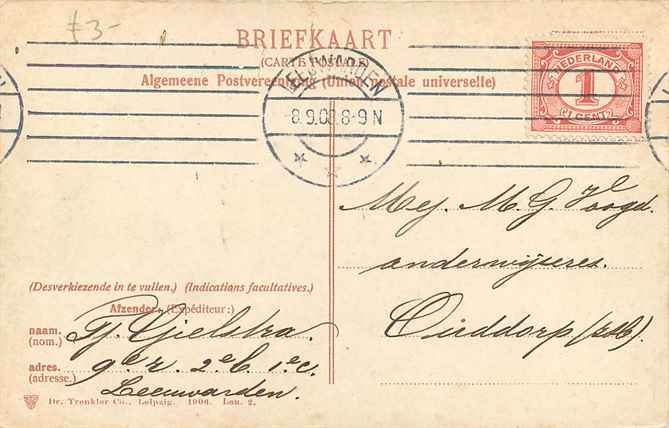 £3-
BRIEFKAART
(CARTE POSTALE)
Algemeene Postvereeniging (Union postale universelle)
LEEUWARDEN
8.9.08.8-9N
NEDERLAND
1
CENT
Mej. M. G. Voogd.
onderwijseres.
Ouddorp (zh).
(Desverkiezende in te vullen.) (Indications facultatives.)
Afzender: (Expéditeur:)
naam. Tj. Gjelstra.
(nom.)
adres. 9e r. 2e b. 1e c.
(adresse.) Leeuwarden.
Dr. Trenkler Co., Leipzig. 1906. Lau. 2.